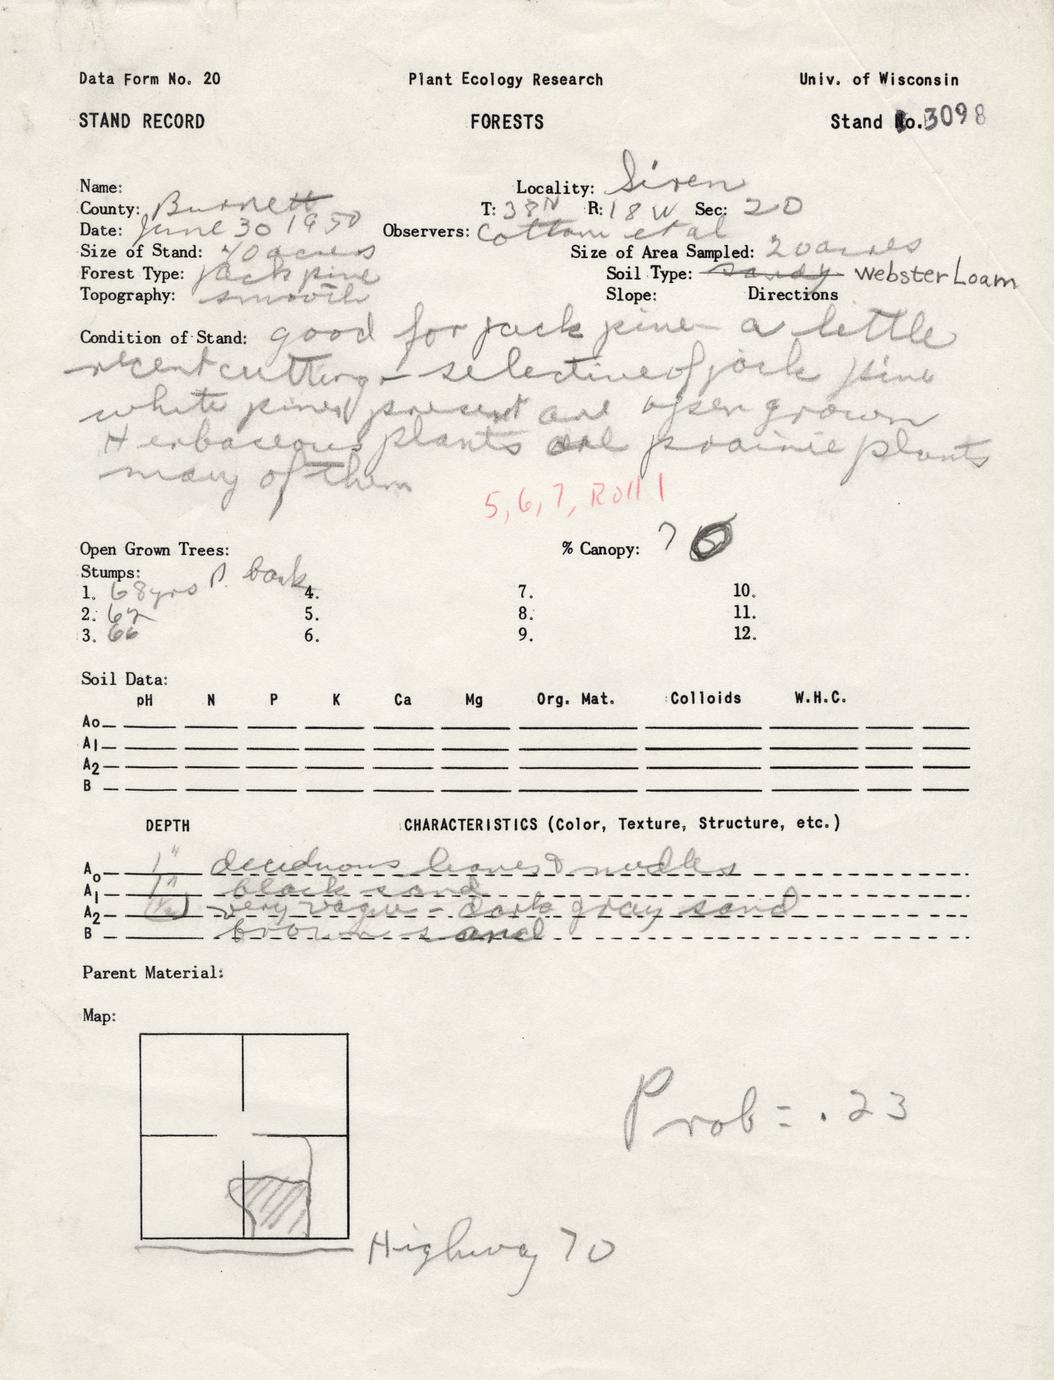 Data Form No. 20 Plant Ecology Research Univ. of Wisconsin
STAND RECORD FORESTS Stand No. 3098
Name: Locality: Siren
County: Burnett T: 38N R: 18W Sec: 20
Date: June 30 1950 Observers: Cottam et al
Size of Stand: 40 acres Size of Area Sampled: 20 acres
Forest Type: Jack pine Soil Type: sandy Webster Loam
Topography: smooth Slope: Directions
Condition of Stand: good for jack pine – a little
recent cutting – selective of jack pine
white pines present are open grown
Herbaseous plants are prairie plants
many of them
5, 6, 7, Roll 1
Open Grown Trees: % Canopy: 7
Stumps:
1. 68 yrs P. bank 4. 7. 10.
2. 5. 8. 11.
3. 66 6. 9. 12.
Soil Data:
pH N P K Ca Mg Org. Mat. Colloids W.H.C.
Ao
A1
A2
B
DEPTH CHARACTERISTICS (Color, Texture, Structure, etc.)
Ao 1" deciduous leaves & needles
A1 1" black sand
A2 very vague – dark gray sand
B brown sand
Parent Material:
Map:
Prob = .23
Highway 70